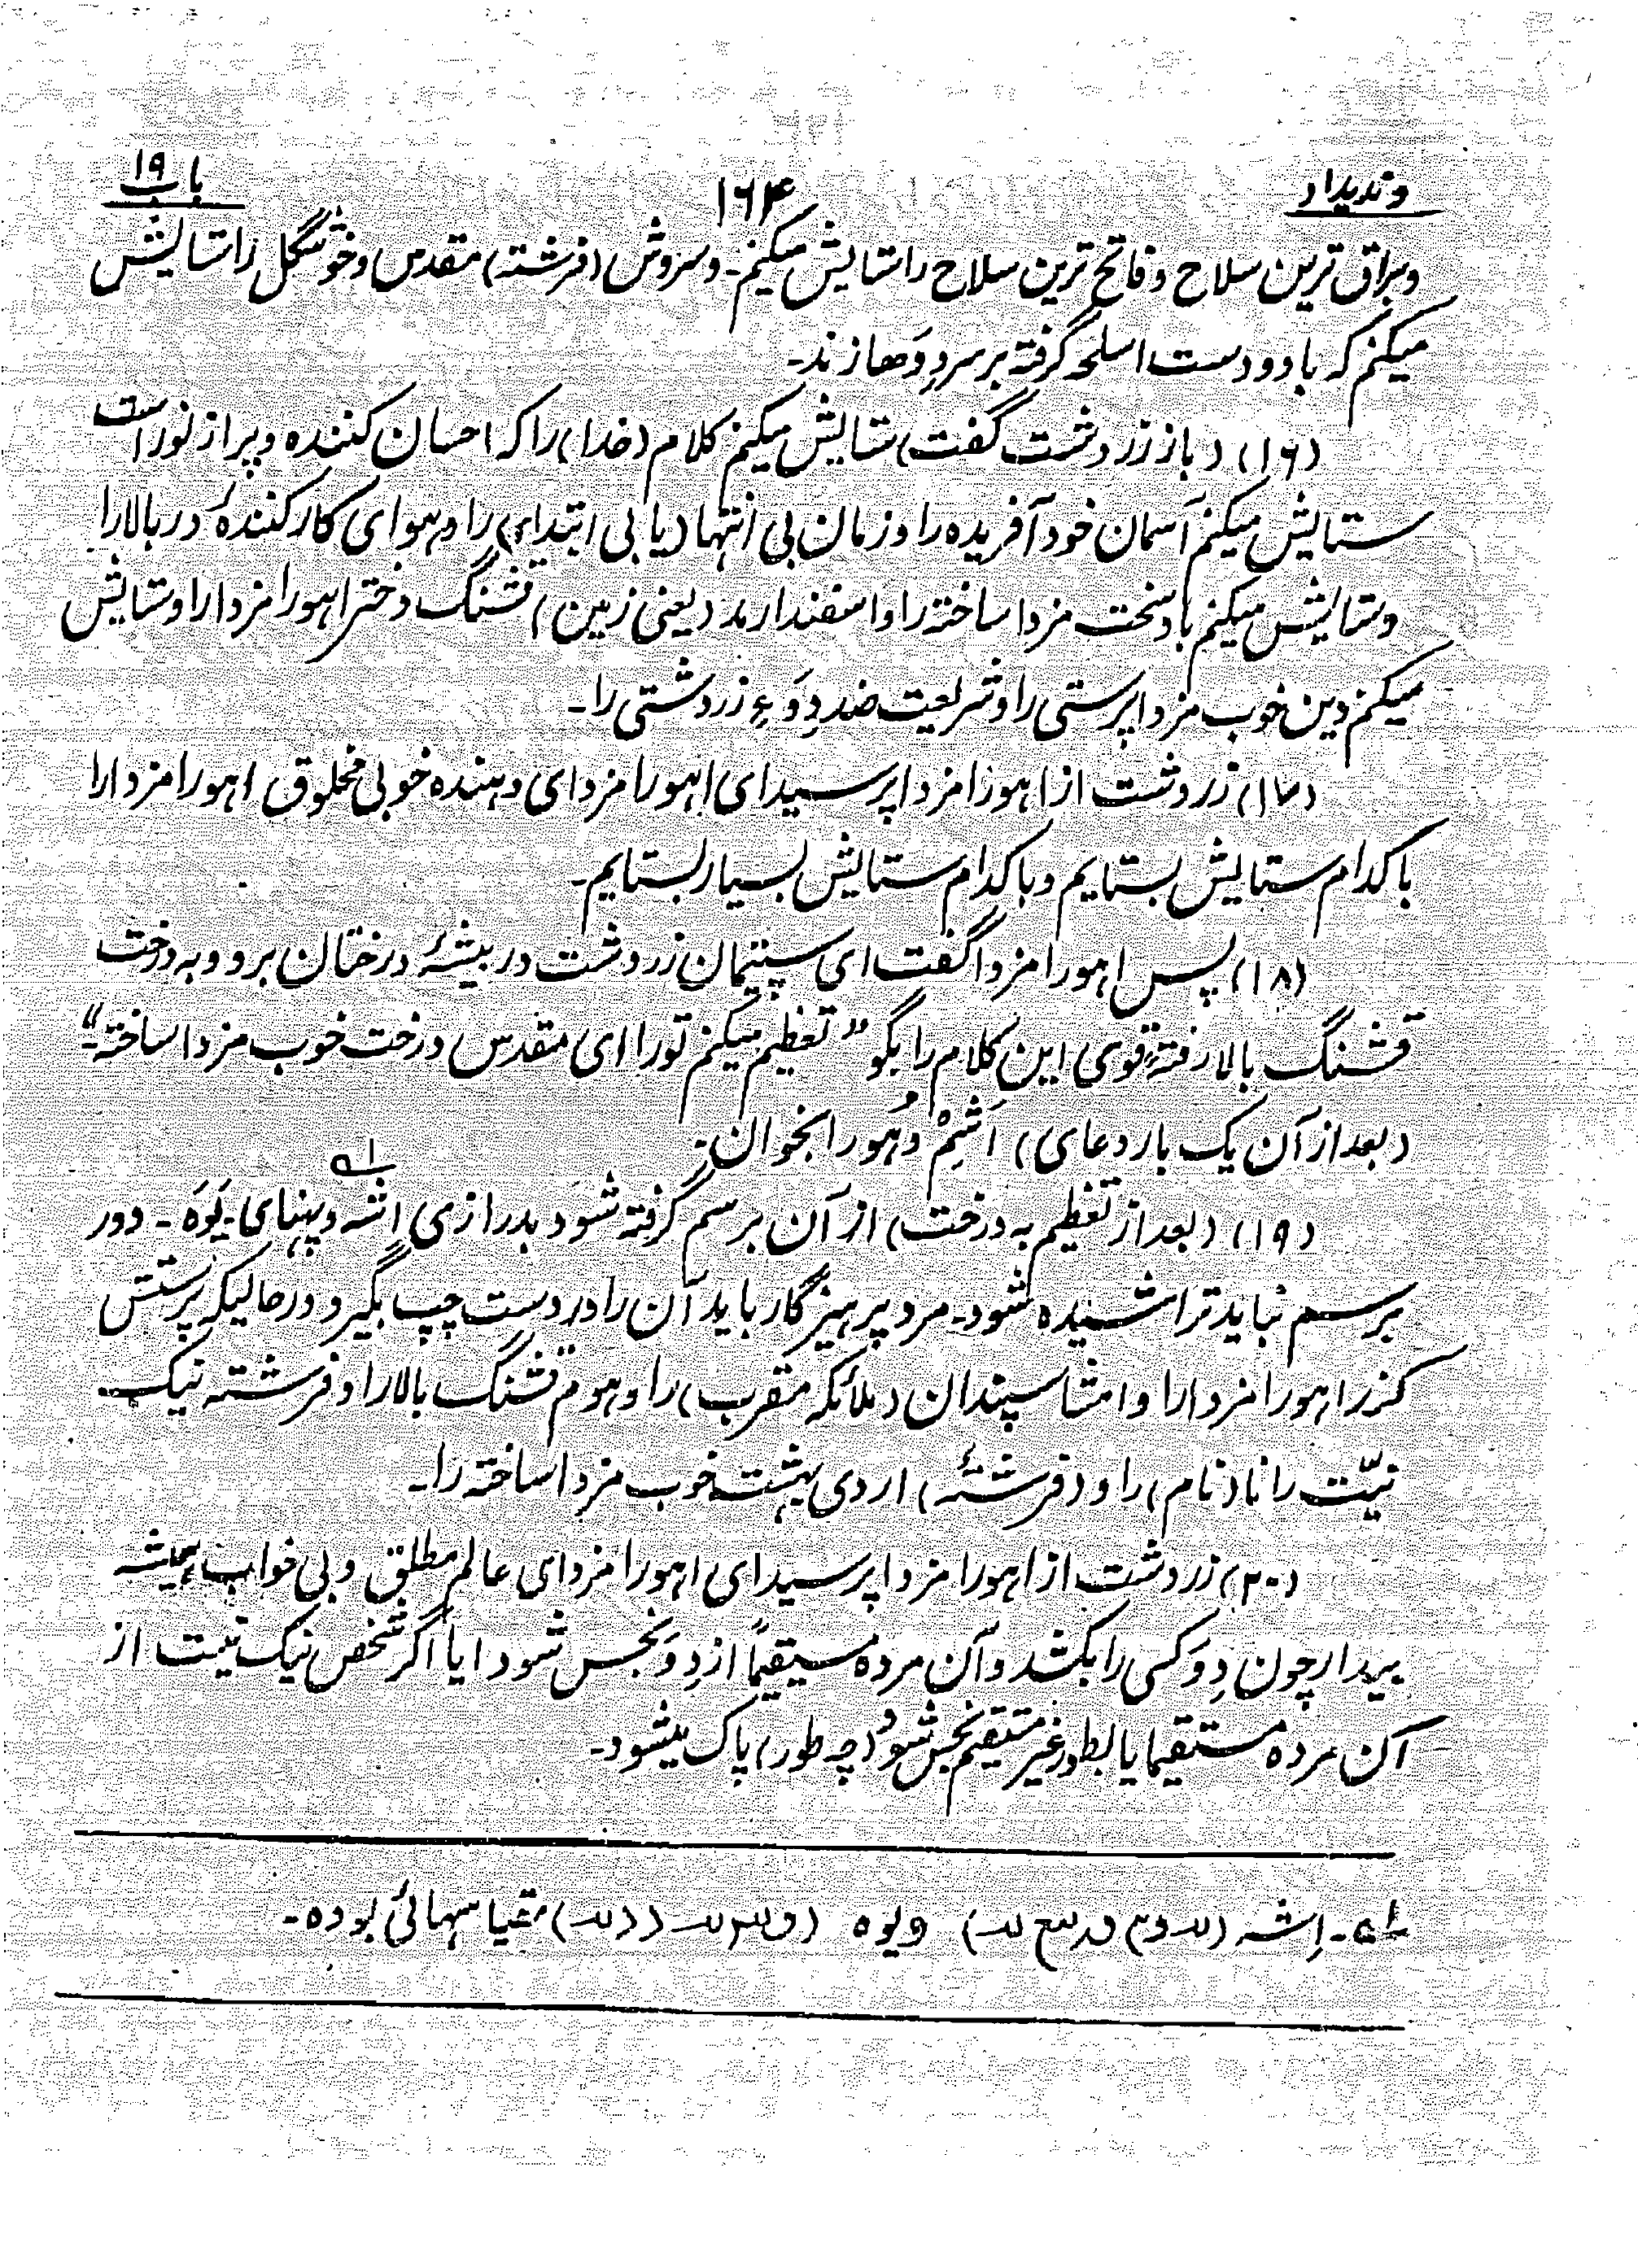 وندیداد
۱۶۴
باب ۱۹
وبراق ترین سلاح وفاتح ترین سلاح راستایش میکنم - وسروش (فرشته) مقدس وخوشگل راستایش
میکنم که با دو دست اسلحه گرفته بر سر دِوَها زند -
(۱۶) (باز زردشت گفت) ستایش میکنم کلام (خدا) را که احسان کننده وپر از نور است
ستایش میکنم آسمان خود آفریده را وزمان بی انتها (یا بی ابتدای) را وهوای کار کننده در بالا را
وستایش میکنم باد سخت مزدا ساخته را واسفندارمذ (یعنی زمین) قشنگ دختر اهورا مزدا را وستایش
میکنم دین خوب مزدا پرستی را وشریعت ضد دِوَءِ زردشتی را -
(۱۷) زردشت از اهورا مزدا پرسید ای اهورا مزدای دهنده خوبی مخلوق اهورا مزدا را
با کدام ستایش بستایم وبا کدام ستایش بسیار بستایم -
(۱۸) پس اهورا مزدا گفت ای سپتیمان زردشت در بیشهٔ درختان برو وبه درخت
قشنگ بالا رفتهٔ قوی این کلام را بگو "تعظیم میکنم تورا ای مقدس درخت خوب مزدا ساخته"-
(بعد از آن یک بار دعای) اَشِمْ وُهُو را بخوان -
(۱۹) (بعد از تعظیم به درخت) از آن برسم گرفته شود بدرازی اشه وپهنای - یَوَه - دور ۱ه
برسم نباید تراشیده شود - مرد پرهیزگار باید آن را در دست چپ بگیرد در حالیکه پرستش
کنزر اهورا مزدا را وامشاسپندان (ملائکه مقرب) را وهوم قشنگ بالا را وفرشته نیک
نیّت رانا (نام) را و (فرشتهٔ) اردی بهشت خوب مزدا ساخته را -
(۲۰) زردشت از اهورا مزدا پرسید ای اهورا مزدای عالم مطلق وبی خواب همیشه
بیدار چون دِوَ کسی را بکشد وآن مرده مستقیماً از دِوَ نجس شود ایا اگر شخص نیک نیت از
آن مرده مستقیما یا بطور غیر مستقیم نجس شود (چه طور) پاک میشود -
۱ه - اِشه ویوه مقیاسهائی بوده -